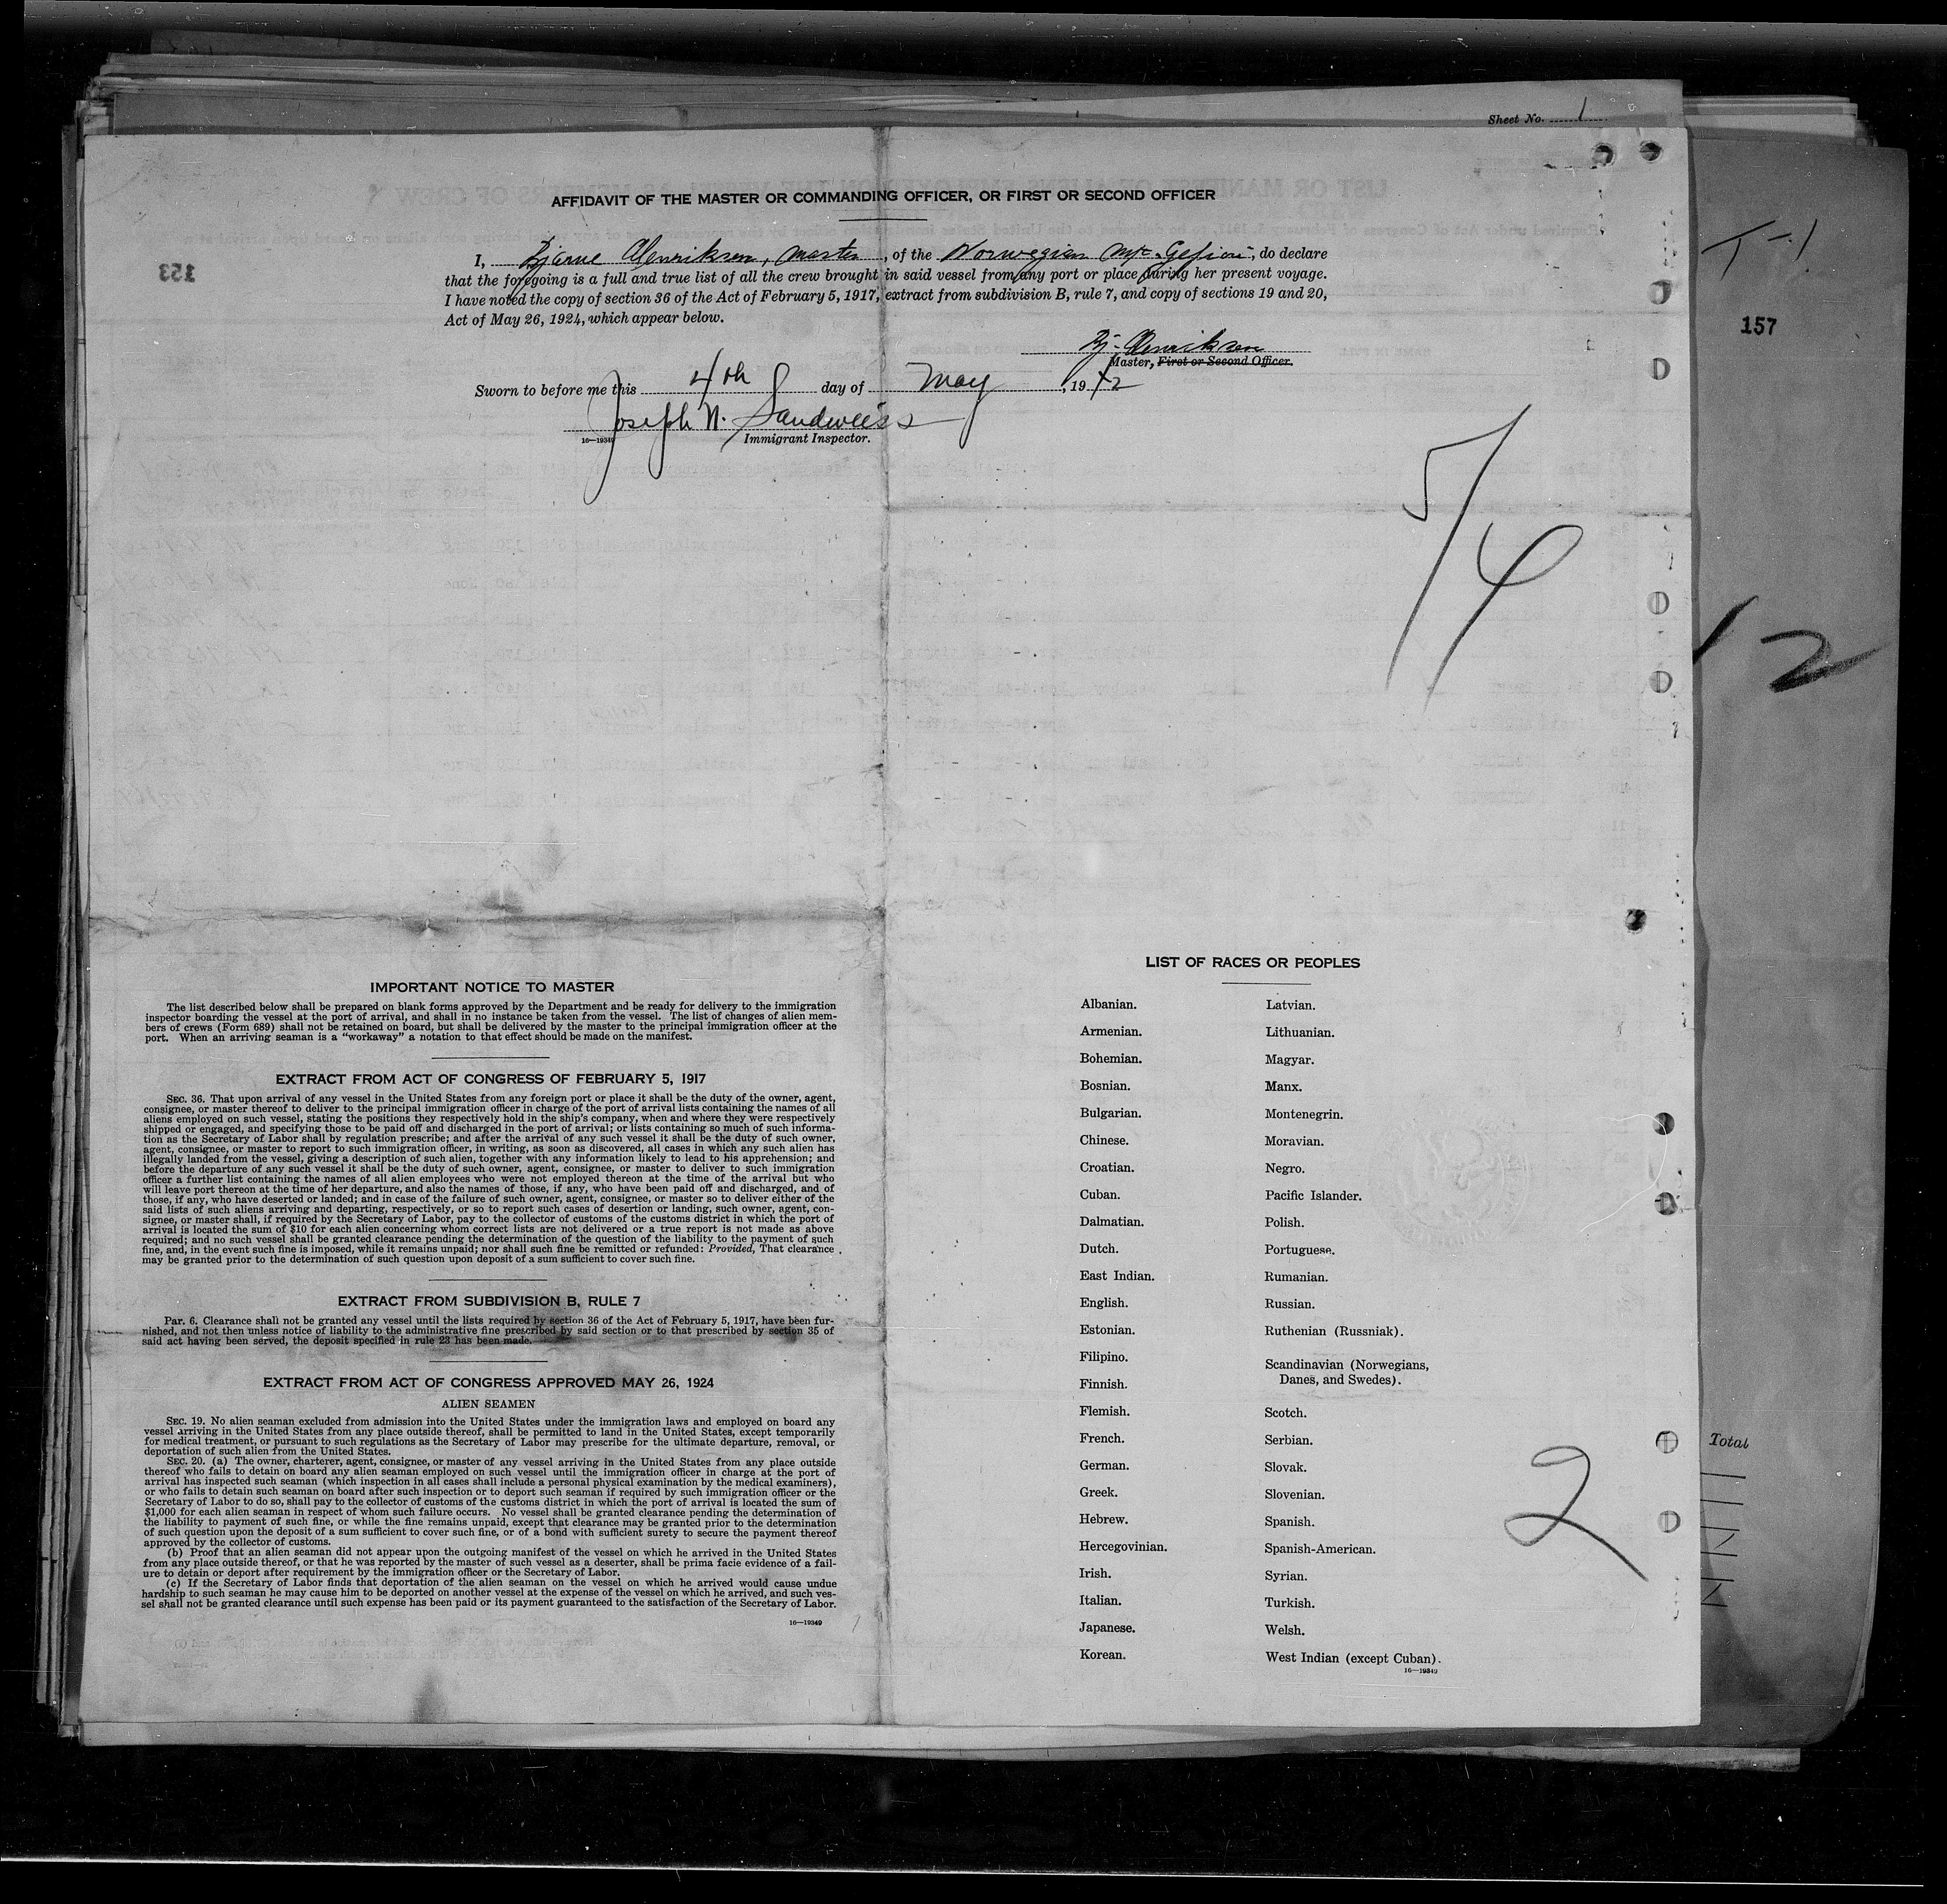 Sheet No. 1
AFFIDAVIT OF THE MASTER OR COMMANDING OFFICER, OR FIRST OR SECOND OFFICER
I, Bjarne Henriksen, Master, of the Norwegian M/S "Gefion", do declare
that the foregoing is a full and true list of all the crew brought in said vessel from any port or place during her present voyage.
I have noted the copy of section 36 of the Act of February 5, 1917, extract from subdivision B, rule 7, and copy of sections 19 and 20,
Act of May 26, 1924, which appear below.
Bj. Henriksen
Master, First or Second Officer.
Sworn to before me this 4th day of May, 1942
Joseph N. Sandweiss
16—19349 Immigrant Inspector.
153
T-1
157
5/4
12
IMPORTANT NOTICE TO MASTER
The list described below shall be prepared on blank forms approved by the Department and be ready for delivery to the immigration
inspector boarding the vessel at the port of arrival, and shall in no instance be taken from the vessel. The list of changes of alien mem-
bers of crews (Form 689) shall not be retained on board, but shall be delivered by the master to the principal immigration officer at the
port. When an arriving seaman is a "workaway" a notation to that effect should be made on the manifest.
EXTRACT FROM ACT OF CONGRESS OF FEBRUARY 5, 1917
SEC. 36. That upon arrival of any vessel in the United States from any foreign port or place it shall be the duty of the owner, agent,
consignee, or master thereof to deliver to the principal immigration officer in charge of the port of arrival lists containing the names of all
aliens employed on such vessel, stating the positions they respectively hold in the ship's company, when and where they were respectively
shipped or engaged, and specifying those to be paid off and discharged in the port of arrival; or lists containing so much of such informa-
tion as the Secretary of Labor shall by regulation prescribe; and after the arrival of any such vessel it shall be the duty of such owner,
agent, consignee, or master to report to such immigration officer, in writing, as soon as discovered, all cases in which any such alien has
illegally landed from the vessel, giving a description of such alien, together with any information likely to lead to his apprehension; and
before the departure of any such vessel it shall be the duty of such owner, agent, consignee, or master to deliver to such immigration
officer a further list containing the names of all alien employees who were not employed thereon at the time of the arrival but who
will leave port thereon at the time of her departure, and also the names of those, if any, who have been paid off and discharged, and of
those, if any, who have deserted or landed; and in case of the failure of such owner, agent, consignee, or master so to deliver either of the
said lists of such aliens arriving and departing, respectively, or so to report such cases of desertion or landing, such owner, agent, con-
signee, or master shall, if required by the Secretary of Labor, pay to the collector of customs of the customs district in which the port of
arrival is located the sum of $10 for each alien concerning whom correct lists are not delivered or a true report is not made as above
required; and no such vessel shall be granted clearance pending the determination of the question of the liability to the payment of such
fine, and, in the event such fine is imposed, while it remains unpaid; nor shall such fine be remitted or refunded: Provided, That clearance
may be granted prior to the determination of such question upon deposit of a sum sufficient to cover such fine.
EXTRACT FROM SUBDIVISION B, RULE 7
Par. 6. Clearance shall not be granted any vessel until the lists required by section 36 of the Act of February 5, 1917, have been fur-
nished, and not then unless notice of liability to the administrative fine prescribed by said section or to that prescribed by section 35 of
said act having been served, the deposit specified in rule 23 has been made.
EXTRACT FROM ACT OF CONGRESS APPROVED MAY 26, 1924
ALIEN SEAMEN
SEC. 19. No alien seaman excluded from admission into the United States under the immigration laws and employed on board any
vessel arriving in the United States from any place outside thereof, shall be permitted to land in the United States, except temporarily
for medical treatment, or pursuant to such regulations as the Secretary of Labor may prescribe for the ultimate departure, removal, or
deportation of such alien from the United States.
SEC. 20. (a) The owner, charterer, agent, consignee, or master of any vessel arriving in the United States from any place outside
thereof who fails to detain on board any alien seaman employed on such vessel until the immigration officer in charge at the port of
arrival has inspected such seaman (which inspection in all cases shall include a personal physical examination by the medical examiners),
or who fails to detain such seaman on board after such inspection or to deport such seaman if required by such immigration officer or the
Secretary of Labor to do so, shall pay to the collector of customs of the customs district in which the port of arrival is located the sum of
$1,000 for each alien seaman in respect of whom such failure occurs. No vessel shall be granted clearance pending the determination of
the liability to payment of such fine, or while the fine remains unpaid, except that clearance may be granted prior to the determination
of such question upon the deposit of a sum sufficient to cover such fine, or of a bond with sufficient surety to secure the payment thereof
approved by the collector of customs.
(b) Proof that an alien seaman did not appear upon the outgoing manifest of the vessel on which he arrived in the United States
from any place outside thereof, or that he was reported by the master of such vessel as a deserter, shall be prima facie evidence of a fail-
ure to detain or deport after requirement by the immigration officer or the Secretary of Labor.
(c) If the Secretary of Labor finds that deportation of the alien seaman on the vessel on which he arrived would cause undue
hardship to such seaman he may cause him to be deported on another vessel at the expense of the vessel on which he arrived, and such ves-
sel shall not be granted clearance until such expense has been paid or its payment guaranteed to the satisfaction of the Secretary of Labor.
16—19349
LIST OF RACES OR PEOPLES
Albanian.
Armenian.
Bohemian.
Bosnian.
Bulgarian.
Chinese.
Croatian.
Cuban.
Dalmatian.
Dutch.
East Indian.
English.
Estonian.
Filipino.
Finnish.
Flemish.
French.
German.
Greek.
Hebrew.
Hercegovinian.
Irish.
Italian.
Japanese.
Korean.
Latvian.
Lithuanian.
Magyar.
Manx.
Montenegrin.
Moravian.
Negro.
Pacific Islander.
Polish.
Portuguese.
Rumanian.
Russian.
Ruthenian (Russniak).
Scandinavian (Norwegians,
Danes, and Swedes).
Scotch.
Serbian.
Slovak.
Slovenian.
Spanish.
Spanish-American.
Syrian.
Turkish.
Welsh.
West Indian (except Cuban).
16—19349
2
Total